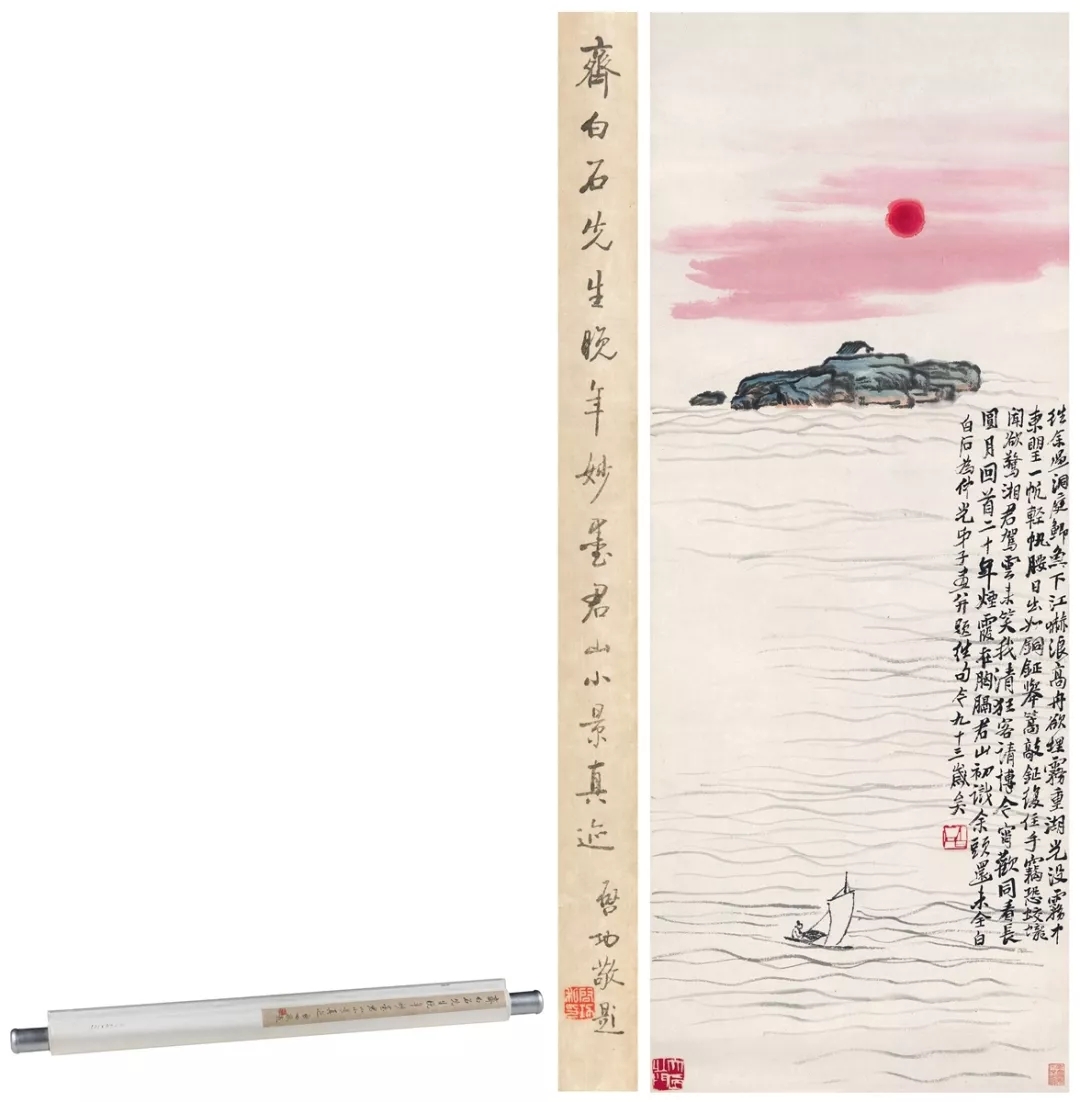 齊白石先生晚年妙墨君山小景真迹
啓功敬題
往余過洞庭鯽魚下江嚇浪高舟欲埋霧重湖光没霧才
東望一帆輕帆腰日出如銅鉦舉篙敲鉦復住手竊恐蛟龍
聞欲驚湘君駕雲來笑我清狂客請博今宵歡同看長
圓月回首二十年煙霞在胸膈君山初識余頭還未全白
白石為仲光弟子畫并題往句今九十三歲矣